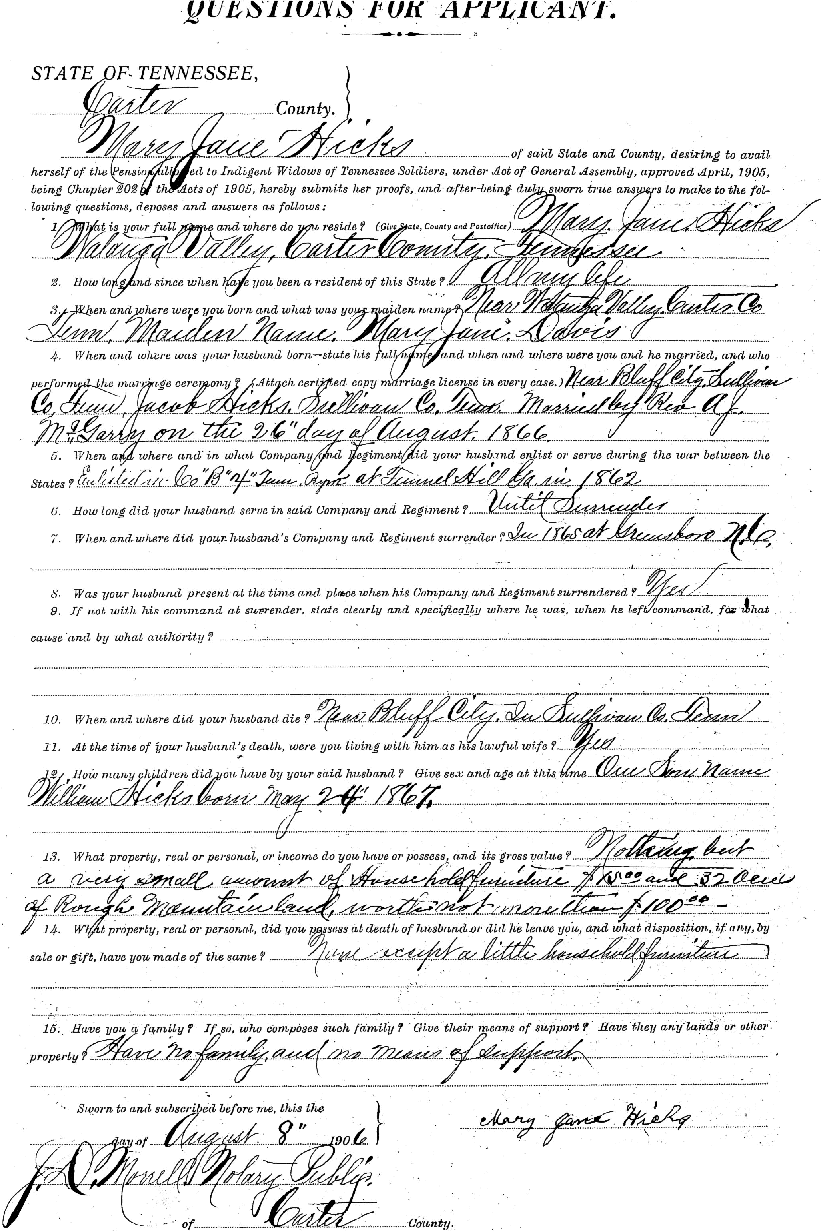 QUESTIONS FOR APPLICANT.
STATE OF TENNESSEE,
Carter County.
Mary Jane Hicks of said State and County, desiring to avail
herself of the Pension allowed to Indigent Widows of Tennessee Soldiers, under Act of General Assembly, approved April, 1905,
being Chapter 202 of the Acts of 1905, hereby submits her proofs, and after being duly sworn true answers to make to the fol-
lowing questions, deposes and answers as follows:
1. What is your full name and where do you reside? (Give State, County and Postoffice) Mary Jane Hicks
Watauga Valley, Carter County, Tennessee
2. How long and since when have you been a resident of this State? All my life
3. When and where were you born and what was your maiden name? Near Watauga Valley, Carter Co
Tenn. Maiden Name. Mary Jane Davis
4. When and where was your husband born—state his full name, and when and where were you and he married, and who
performed the marriage ceremony? (Attach certified copy marriage license in every case.) Near Bluff City, Sullivan
Co, Tenn, Jacob Hicks. Sullivan Co. Tenn. Married by Rev. A.J.
on the 26" day of August. 1866
5. When and where and in what Company and Regiment did your husband enlist or serve during the war between the
States? Enlisted in Co "B" 4" Tenn. at Tunnel Hill Ga. in 1862
6. How long did your husband serve in said Company and Regiment? Until Surrender
7. When and where did your husband's Company and Regiment surrender? In 1865 at Greensboro N.C.
8. Was your husband present at the time and place when his Company and Regiment surrendered? Yes
9. If not with his command at surrender, state clearly and specifically where he was, when he left command, for what
cause and by what authority?
10. When and where did your husband die? Near Bluff City. In Sullivan Co. Tenn
11. At the time of your husband's death, were you living with him as his lawful wife? Yes
12. How many children did you have by your said husband? Give sex and age at this time One Son Name
William Hicks born May 24" 1867.
13. What property, real or personal, or income do you have or possess, and its gross value? Nothing but
a very small amount of Household furniture $15.00 and 32 Acres
of Rough Mountain land, worth not more than $100.00 -
14. What property, real or personal, did you possess at death of husband or did he leave you, and what disposition, if any, by
sale or gift, have you made of the same? None except a little household furniture
15. Have you a family? If so, who composes such family? Give their means of support? Have they any lands or other
property? Have no family, and no means of support.
Sworn to and subscribed before me, this the
day of August 8" 1906
Mary Jane Hicks
J. D. Morrell Notary Public
of Carter County.